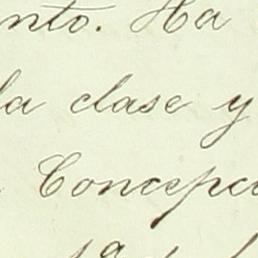 nto. Ha
la clase y
Concepc